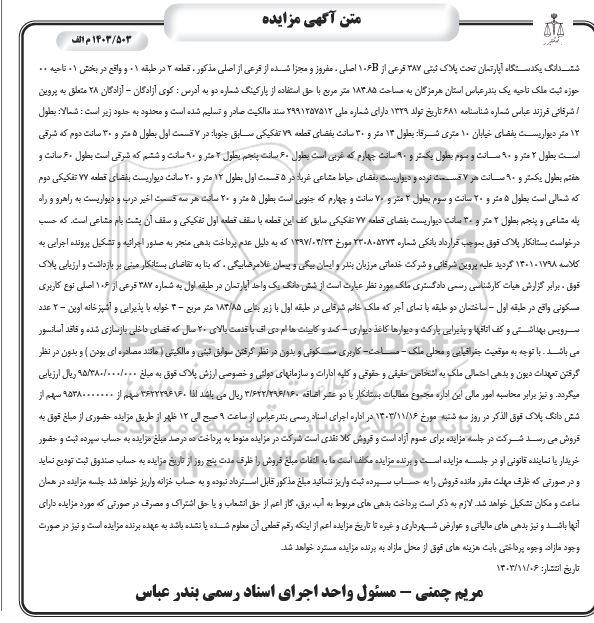 متن آگهی مزایده
۱۴۰۳/۵۰۳ م الف
ششدانگ یکدستگاه آپارتمان تحت پلاک ثبتی ۳۸۷ فرعی از ۱۰۶B اصلی ، مفروز و مجزا شده از فرعی از اصلی مذکور ، قطعه ۲ در طبقه ۰۱ و واقع در بخش ۰۱ ناحیه ۰۰
حوزه ثبت ملک ناحیه یک بندرعباس استان هرمزگان به مساحت ۱۸۴.۸۵ متر مربع با حق استفاده از پارکینگ شماره دو به آدرس : کوی آزادگان - آزادگان ۲۸ متعلق به پروین
/ شرقائی فرزند عباس شماره شناسنامه ۶۸۱ تاریخ تولد ۱۳۲۹ دارای شماره ملی ۲۹۹۱۲۵۷۵۱۲ سند مالکیت صادر و تسلیم شده است و محدود به حدود زیر است : شمالا: بطول
۱۲ متر دیواریست بفضای خیابان ۱۰ متری شرقا: بطول ۱۴ متر و ۳۰ سانت بفضای قطعه ۷۹ تفکیکی سابق جنوبا: در ۷ قسمت اول بطول ۵ متر و ۳۰ سانت دوم که شرقی
است بطول ۲ متر و ۹۰ سانت و سوم بطول یکمتر و ۹۰ سانت چهارم که غربی است بطول ۶۰ سانت پنجم بطول ۲ متر و ۹۰ سانت و ششم که شرقی است بطول ۶۰ سانت و
هفتم بطول یکمتر و ۹۰ سانت هر ۷ قسمت نرده و دیواریست بفضای حیاط مشاعی غربا: در ۵ قسمت اول بطول ۱۲ متر و ۲۰ سانت دیواریست بفضای قطعه ۷۷ تفکیکی دوم
که شمالی است بطول ۵ متر و ۲۰ سانت و سوم بطول ۲ متر و ۷۰ سانت و چهارم که جنوبی است بطول ۵ متر و ۲۰ سانت هر سه قسمت اخیر درب و دیواریست به راهرو و راه
پله مشاعی و پنجم بطول ۲ متر و ۳۰ سانت دیواریست بفضای قطعه ۷۷ تفکیکی سابق کف این قطعه با سقف قطعه اول تفکیکی و سقف آن پشت بام مشاعی است. که حسب
درخواست بستانکار پلاک فوق بموجب قرارداد بانکی شماره ۲۳۰۸۰۵۲۷۴ مورخ ۱۳۹۷/۰۴/۲۴ که به دلیل عدم پرداخت بدهی منجر به صدور اجرائیه و تشکیل پرونده اجرایی به
کلاسه ۱۴۰۱۰۱۷۹۸ گردید علیه پروین شرقائی و شرکت خدماتی مرزبان بندر و ایمان بیگی و پیمان غلامرضابیگی ، که بنا به تقاضای بستانکار مبنی بر بازداشت و ارزیابی پلاک
فوق ، برابر گزارش هیات کارشناسی رسمی دادگستری ملک مورد نظر عبارت است از شش دانگ یک واحد آپارتمان در طبقه اول به شماره ۳۸۷ فرعی از ۱۰۶ اصلی نوع کاربری
مسکونی واقع در طبقه اول - ساختمان دو طبقه با نمای آجر که ملک خانم شرقایی در طبقه اول با زیر بنایی ۱۸۴/۸۵ متر مربع - ۴ خوابه با پذیرایی و آشپزخانه اوپن - ۲ عدد
سرویس بهداشتی و کف اتاقها و پذیرایی پارکت و دیوارها کاغذ دیواری - کمد و کابینت ها ام دی اف با قدمت بالای ۲۰ سال که فضای داخلی بازسازی شده و فاقد آسانسور
می باشد . با توجه به موقعیت جغرافیایی و محلی ملک - مساحت- کاربری مسکونی و بدون در نظر گرفتن سوابق ثبتی و مالکیتی ( مانند مصادره ای بودن ) و بدون در نظر
گرفتن تعهدات دیون و بدهی احتمالی ملک به اشخاص حقیقی و حقوقی و کلیه ادارات و سازمانهای دولتی و خصوصی ارزش پلاک فوق به مبلغ ۹۵/۳۸۰/۰۰۰/۰۰۰ ریال ارزیابی
میگردد. و نیز برابر محاسبه امور مالی این اداره مجموع مطالبات بستانکار با دو عشر اضافه ۳/۶۲۲/۲۹۶/۱۶۰ ریال می باشد لذا ۳۶۲۲۲۹۶۱۶۰ سهم از ۹۵۳۸۰۰۰۰۰۰۰ سهم از
شش دانگ پلاک فوق الذکر در روز سه شنبه مورخ ۱۴۰۳/۱۱/۱۶ در اداره اجرای اسناد رسمی بندرعباس از ساعت ۹ صبح الی ۱۲ ظهر از طریق مزایده حضوری از مبلغ فوق به
فروش می رسد شرکت در جلسه مزایده برای عموم آزاد است و فروش کلا نقدی است شرکت در مزایده منوط به پرداخت ده درصد مبلغ مزایده به حساب سپرده ثبت و حضور
خریدار یا نماینده قانونی او در جلسه مزایده است و برنده مزایده مکلف است ما به التفات مبلغ فروش را ظرف مدت پنج روز از تاریخ مزایده به حساب صندوق ثبت تودیع نماید
و در صورتی که ظرف مهلت مقرر مانده فروش را به حساب سپرده ثبت واریز ننمائید مبلغ مذکور قابل استرداد نبوده و به حساب خزانه واریز خواهد شد جلسه مزایده در همان
ساعت و مکان تشکیل خواهد شد. لازم به ذکر است پرداخت بدهی های مربوط به آب، برق، گاز اعم از حق انشعاب و یا حق اشتراک و مصرف در صورتی که مورد مزایده دارای
آنها باشد و نیز بدهی های مالیاتی و عوارض شهرداری و غیره تا تاریخ مزایده اعم از اینکه رقم قطعی آن معلوم شده یا نشده باشد به عهده برنده مزایده است و نیز در صورت
وجود مازاد، وجوه پرداختی بابت هزینه های فوق از محل مازاد به برنده مزایده مسترد خواهد شد.
تاریخ انتشار: ۱۴۰۳/۱۱/۰۶
مریم چمنی - مسئول واحد اجرای اسناد رسمی بندر عباس
ParsNamadData